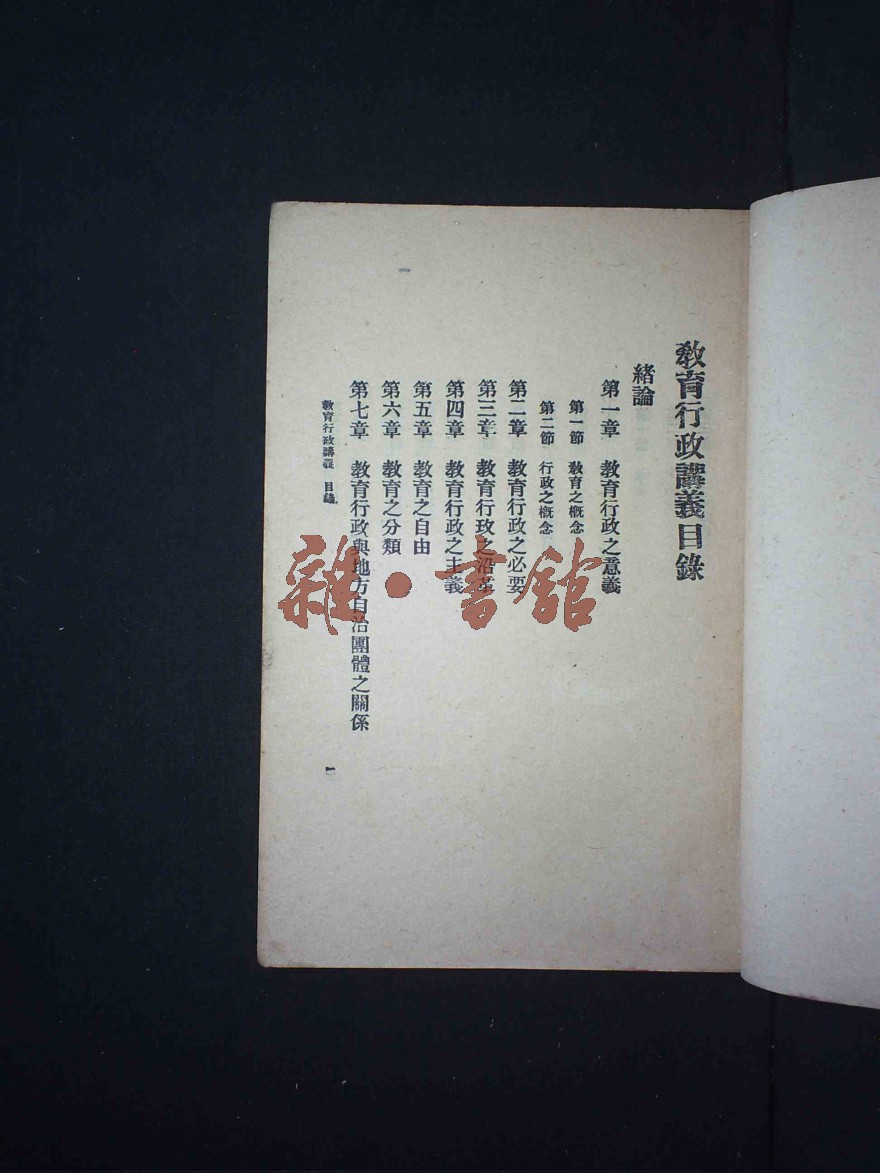 教育行政講義目錄
緒論
第一章 教育行政之意義
第一節 教育之概念
第二節 行政之概念
第二章 教育行政之必要
第三章 教育行政之沿革
第四章 教育行政之主義
第五章 教育之自由
第六章 教育之分類
第七章 教育行政與地方自治團體之關係
教育行政講義 目錄
一
雜·書館